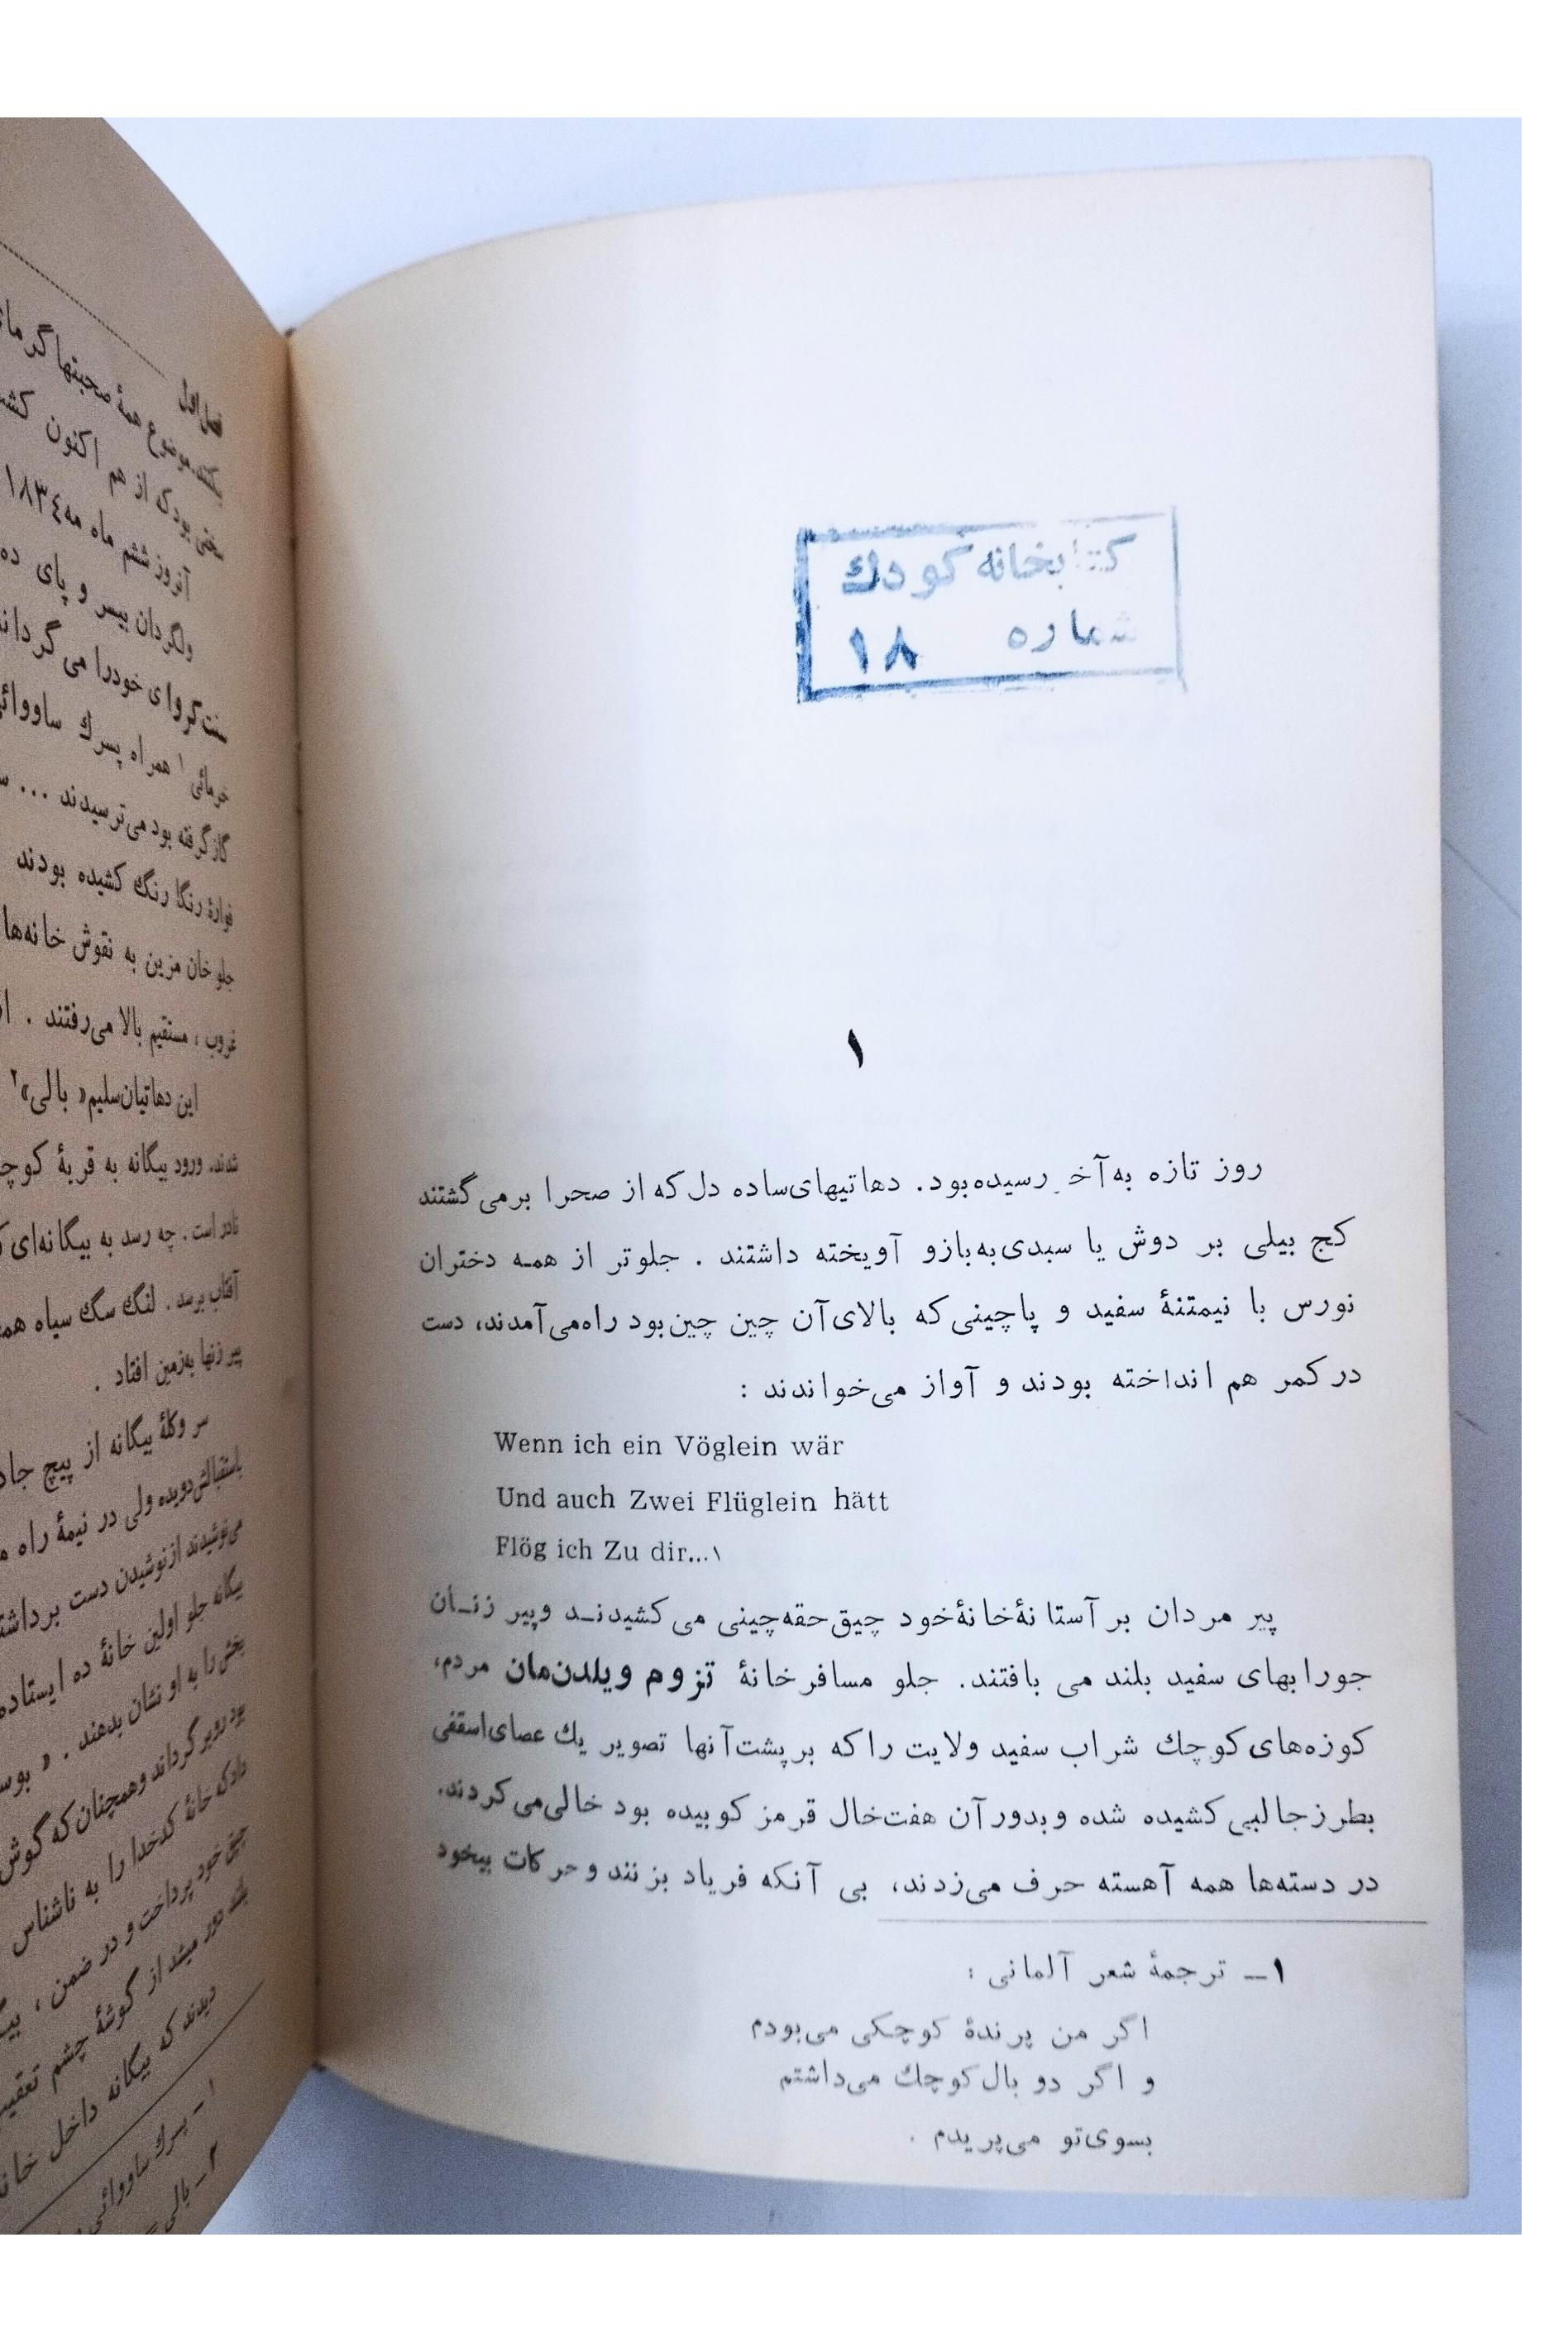 کتابخانه کودك
شماره ۱۸
۱
روز تازه به آخر رسیده بود. دهاتیهای ساده دل که از صحرا برمی‌گشتند
کج بیلی بر دوش یا سبدی به بازو آویخته داشتند . جلوتر از همه دختران
نورس با نیمتنهٔ سفید و پاچینی که بالای آن چین چین بود راه می‌آمدند، دست
در کمر هم انداخته بودند و آواز می‌خواندند :
Wenn ich ein Vöglein wär
Und auch Zwei Flüglein hätt
Flög ich Zu dir...۱
پیر مردان بر آستانهٔ خانهٔ خود چپق حقه چینی می کشیدند و پیر زنان
جورابهای سفید بلند می بافتند. جلو مسافرخانهٔ تزوم ویلدن‌مان مردم،
کوزه‌های کوچك شراب سفید ولایت را که بر پشت آنها تصویر یك عصای اسقفی
بطرز جالبی کشیده شده و بدور آن هفت خال قرمز کوبیده بود خالی می‌کردند.
در دسته‌ها همه آهسته حرف می‌زدند، بی آنکه فریاد بزنند و حرکات بیخود
۱ــ ترجمهٔ شعر آلمانی :
اگر من پرندهٔ کوچکی می‌بودم
و اگر دو بال کوچك می‌داشتم
بسوی تو می‌پریدم .
فصل اول
بکنند. موضوع همهٔ صحبتها گرمای
سختی بود که از هم اکنون
آنروز ششم ماه مه ۱۸۳۴
ولگردان بیسر و پای
خود را می
خرمائی ۱ همراه پسرك
گاز گرفته بود می‌ترسیدند ...
فوارهٔ رنگا رنگ کشیده بودند
جلوخان مزین به نقوش خانه‌ها
غروب ، مستقیم بالا می‌رفتند .
این دهاتیان سلیم « بالی»۲
شدند. ورود بیگانه به قریهٔ
نادر است . چه رسد به بیگانه‌ای
آفتاب برسد . لنگ سگ سیاه
پیر زنها به‌زمین افتاد .
سر و کلهٔ بیگانه از پیچ
باستقبالش دویده ولی در نیمهٔ راه
می‌نوشیدند از نوشیدن دست
بیگانه جلو اولین خانهٔ ده
بخش را به او نشان بدهند . «
بود رو برگرداند و همچنان که گوش
داد که خانهٔ کدخدا را به ناشناس
چپق خود پرداخت و در ضمن ،
دور میشد از گوشهٔ چشم
دیدند که بیگانه داخل
۱ــ پسرك ساووائی
۲ــ بالی